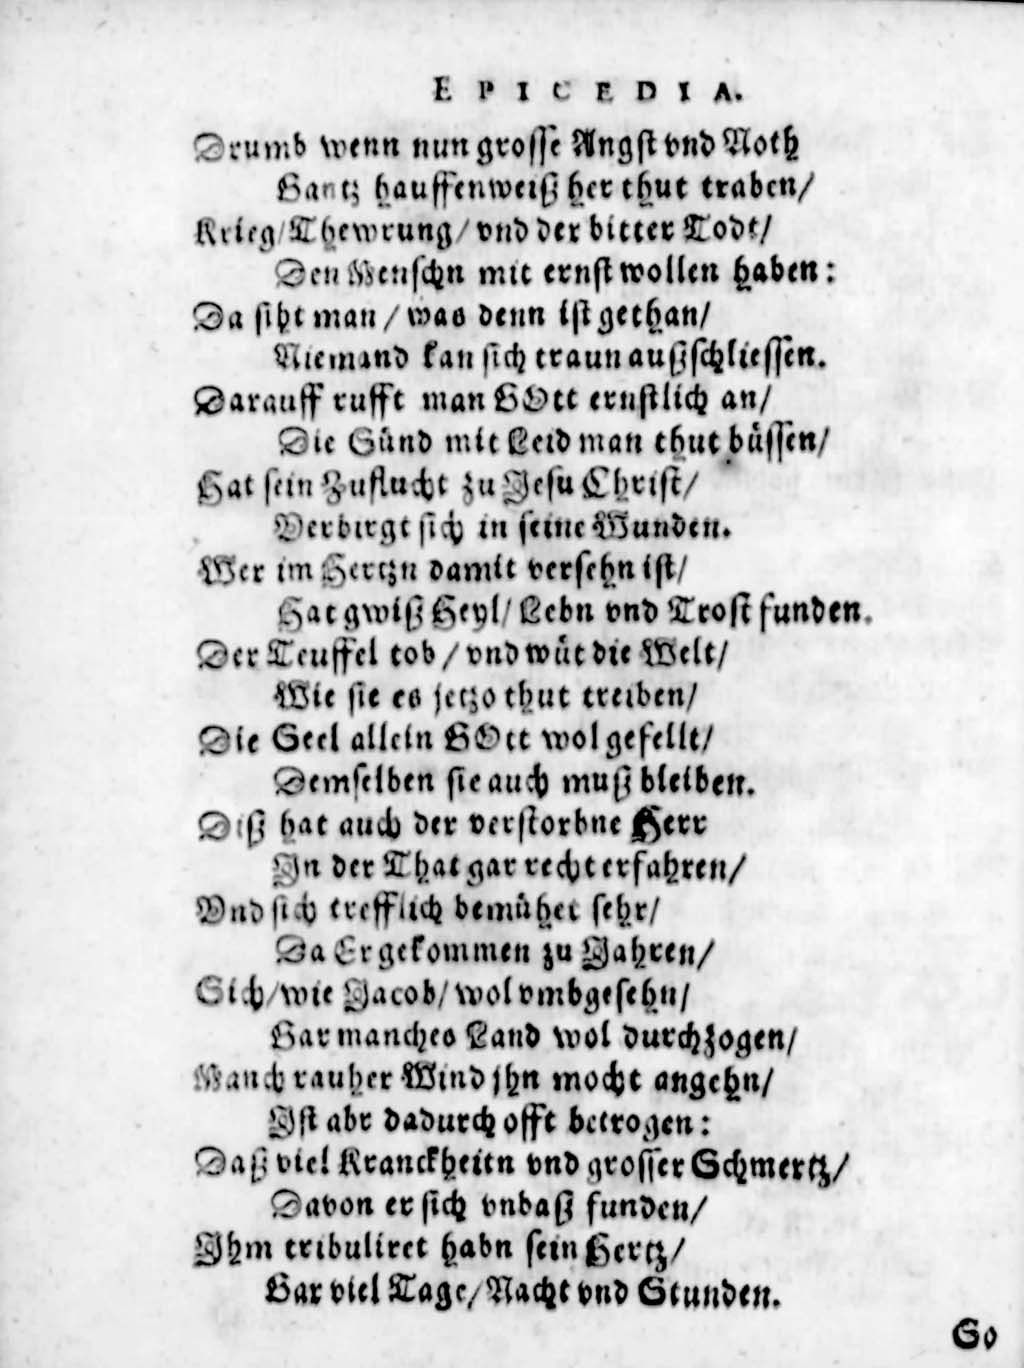 EPICEDIA.
Drumb wenn nun grosse Angst vnd Noth
Gantz hauffenweiß her thut traben/
Krieg/Thewrung/vnd der bitter Todt/
Den Menschn mit ernst wollen haben:
Da siht man/was denn ist gethan/
Niemand kan sich traun außschliessen.
Darauff rufft man GOtt ernstlich an/
Die Sünd mit Leid man thut büssen/
Hat sein Zuflucht zu Jesu Christ/
Verbirgt sich in seine Wunden.
Wer im Hertzn damit versehn ist/
Hat gwiß Heyl/Lebn vnd Trost funden.
Der Teuffel tob/vnd wüt die Welt/
Wie sie es jetzo thut treiben/
Die Seel allein GOtt wol gefellt/
Demselben sie auch muß bleiben.
Diß hat auch der verstorbne Herr
In der That gar recht erfahren/
Vnd sich trefflich bemühet sehr/
Da Er gekommen zu Jahren/
Sich/wie Jacob/wol vmbgesehn/
Gar manches Land wol durchzogen/
Manch rauher Wind jhn mocht angehn/
Ist abr dadurch offt betrogen:
Daß viel Kranckheitn vnd grosser Schmertz/
Davon er sich vnbaß funden/
Ihm tribuliret habn sein Hertz/
Gar viel Tage/Nacht vnd Stunden.
So